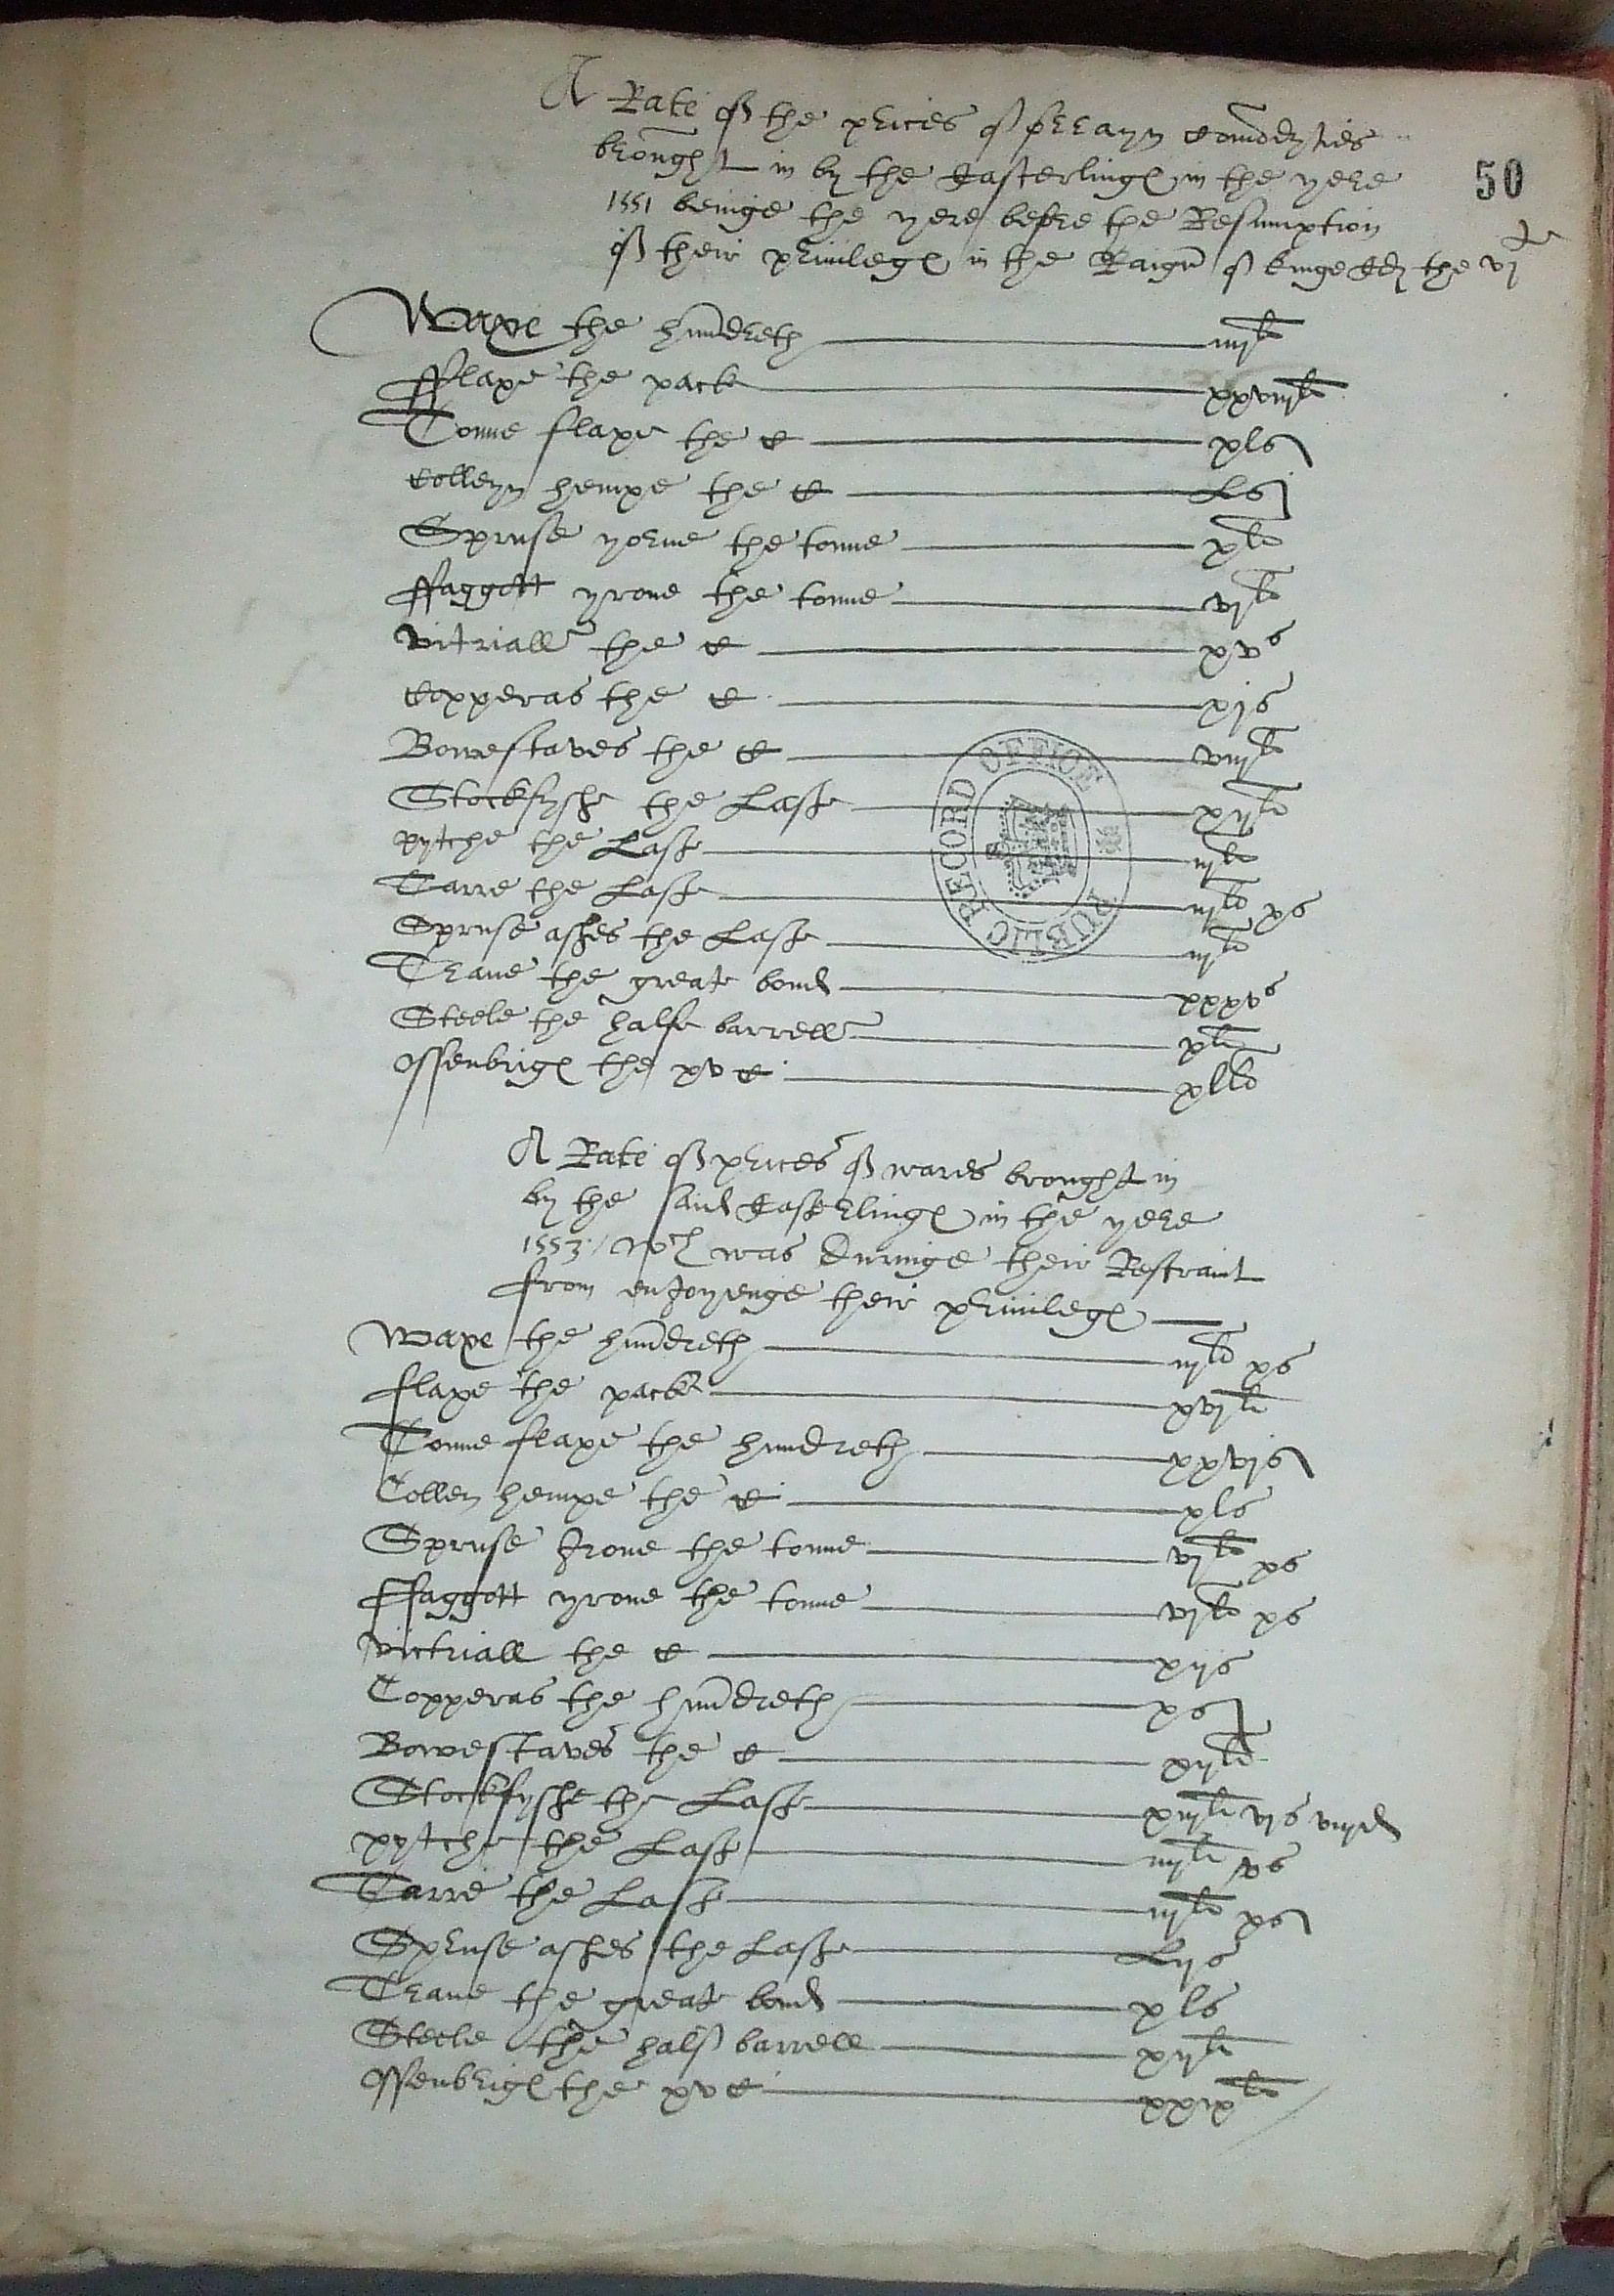 A Rate of the prices of forrayn comodyties
brought in by the Easterlinges in the yere
50
1551 beinge the yere before the Resumption
of their privileges in the Raign of kinge Ed the vjte
Waxe the hundreth iiijli
fflaxe the pack xxviijli
Tonne flaxe the C xls
Colleyn hempe the C Ls
Spruse yorne the tonne xli
ffaggott yrone the tonne vijli
vitriall the C xvs
Copperas the C xijs
Bowestaves the C viijli
Stockfyshe the Last xijli
pytche the Last iijli
Tarre the Last iijli xs
Spruse ashes the Last iijli
Trane the great bond xxxvs
Steele the halfe barrell xli
Ossenbriges the xv C xlli
PUBLIC RECORD OFFICE
A Rate of prices of wares brought in
by the said Easterlinges in the yere
1553 / wch was duringe their Restraint
from enjoyenge their privileges
Waxe the hundreth iijli xs
flaxe the pack xvijli
Tonne flaxe the hundreth xxvis
Collen hempe the C xls
Spruse Irone the tonne vijli xs
ffaggott yrone the tonne vijli xs
Victriall the C xijs
Copperas the hundreth xs
Bowestaves the C xijli
Stockfyshe the Last xiijli vjs viijd
pytche the Last iiijli xs
Tarre the Last iijli xs
Spruse ashes the Last Lijs
Trane the great bond xls
Steele the half barrell xijli
Ossenbriges the xv C xxixli